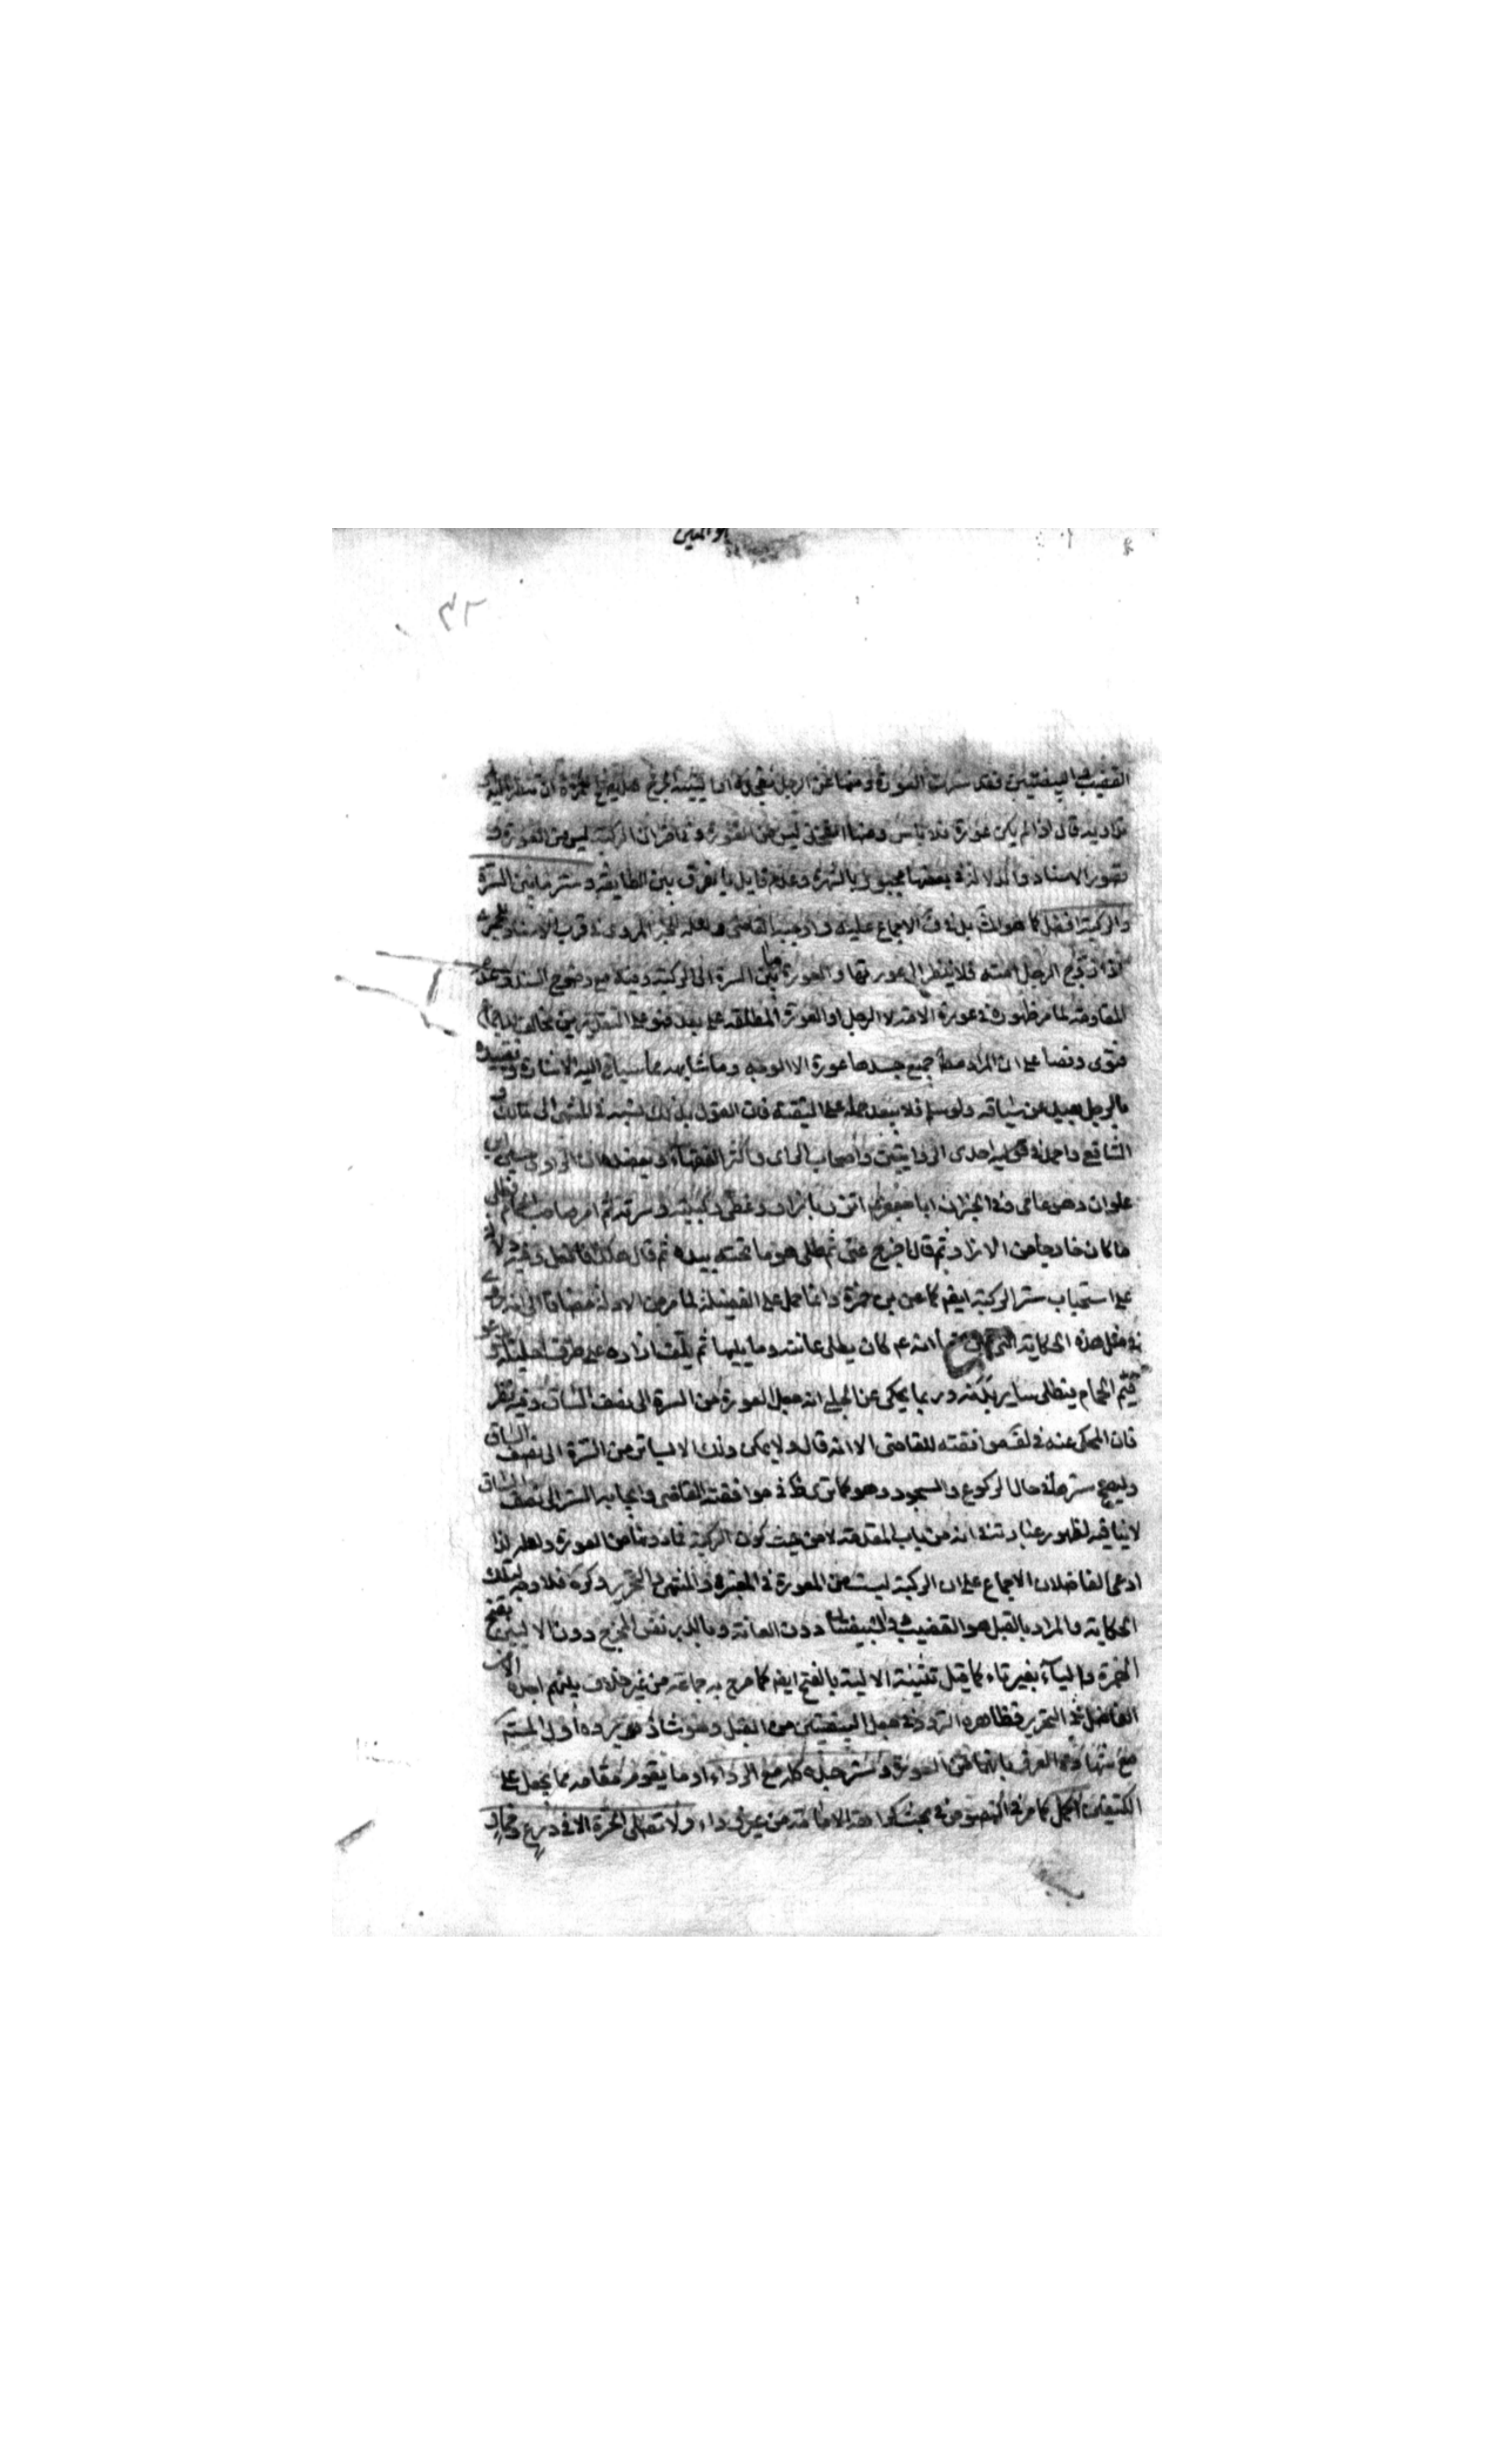 ٤٢
القضيب والبيضتين فقد سترت العورة ومنها عن الرجل بفخذه او اليته الجرح هل يصلح للمرءة ان تنظر اليه
تداويه قال اذا لم يكن عورة فلا باس ومنها الفخذ ليس من العورة وفي اخر ان الركبة ليس من العورة و
قصور الاسناد والدلالة في بعضها مجبور بالشهرة وعدم قايل بالفرق بين الطايفه وستر ما بين السرة
والركبة افضل كما هو بل في الاجماع عليه واوجبه القاضي ولعله للخبر المروي في قرب الاسناد
اذا زوج الرجل امته فلا ينظر الى عورتها والعورة ما بين السرة الى الركبة وفيه مع وضوح السند وعدم
المقاومة لما مر ظهوره في عورة الامة لا الرجل او العورة المطلقة على بعد فهو على التقديرين مخالف للاجماع
فتوى ونصا على ان المراة جميع جسدها عورة الا الوجه وما شابهه مما سياتي اليه الاشارة وتقييده
بالرجل بعيد عن سياقه ولو سلم فلا يبعد حمله على التقية فان القول بذلك نسبه في المنتهى الى مالك و
الشافعي واحمد في احدى الروايتين واصحاب الراى واكثر الفقهاء ويعضده ان الراوي حسين بن
علوان وهو عامي وفي الخبر ان ابا جعفر اتزر بازار وغطى ركبتيه وسرته ثم امر صاحب الحمام فطلى
ما كان خارجا من الازار ثم قال اخرج عني ثم طلى هو ما تحته بيده ثم قال هكذا فافعل وفيه دلالة
على استحباب ستر الركبة ايضا كما عن بن حمزة وانما حمل على الفضيلة لما مر من الادلة مضافا الى انه روى
في مثل هذه الحكاية انه ع كان يطلى عانته وما يليها ثم يلف ازاره على طرف احليله و
قيم الحمام يتطلى ساير بدنه وربما يحكى عن الحلبي انه جعل العورة من السرة الى نصف الساق وفيه نظر
فان المحكى عنه في لف موافقته للقاضي الا انه قال ولا يمكن ذلك الا بساتر من السرة الى نصف الساق
وليصح سترها في حال الركوع والسجود وهو كما ترى ظ في موافقته القاضي وايجابه الستر الى نصف الساق
لا ينافيه لظهور عبارته في انه من باب المقدمة لا من حيث كون الركبة فما دونها من العورة ولعله لذا
ادعى الفاضلان الاجماع على ان الركبة ليست من العورة في المعتبر والمنتهى والتحرير وكره فلا وجه لتلك
الحكاية والمراد بالقبل هو القضيب والبيضتان دون العانة وبالدبر نفس المخرج دون الاليين بفتح
الهمزة والياء بغير تاء كما قيل تثنية الالية بالفتح ايضا كما صرح به جماعة من غير خلاف بينهم اجده الا من
الفاضل في التحرير فظاهره التردد في جعل البيضتين من القبل وهو شاذ المستمر
مع شهادة العرف بانهما من العورة وستر جسده كله مع الرداء او ما يقوم مقامه مما يجعل على
الكتفين اكمل كما مر في النصوص في بحث كراهة الامامة من غير رداء ولا تصلى الحرة الا في درع وخمار